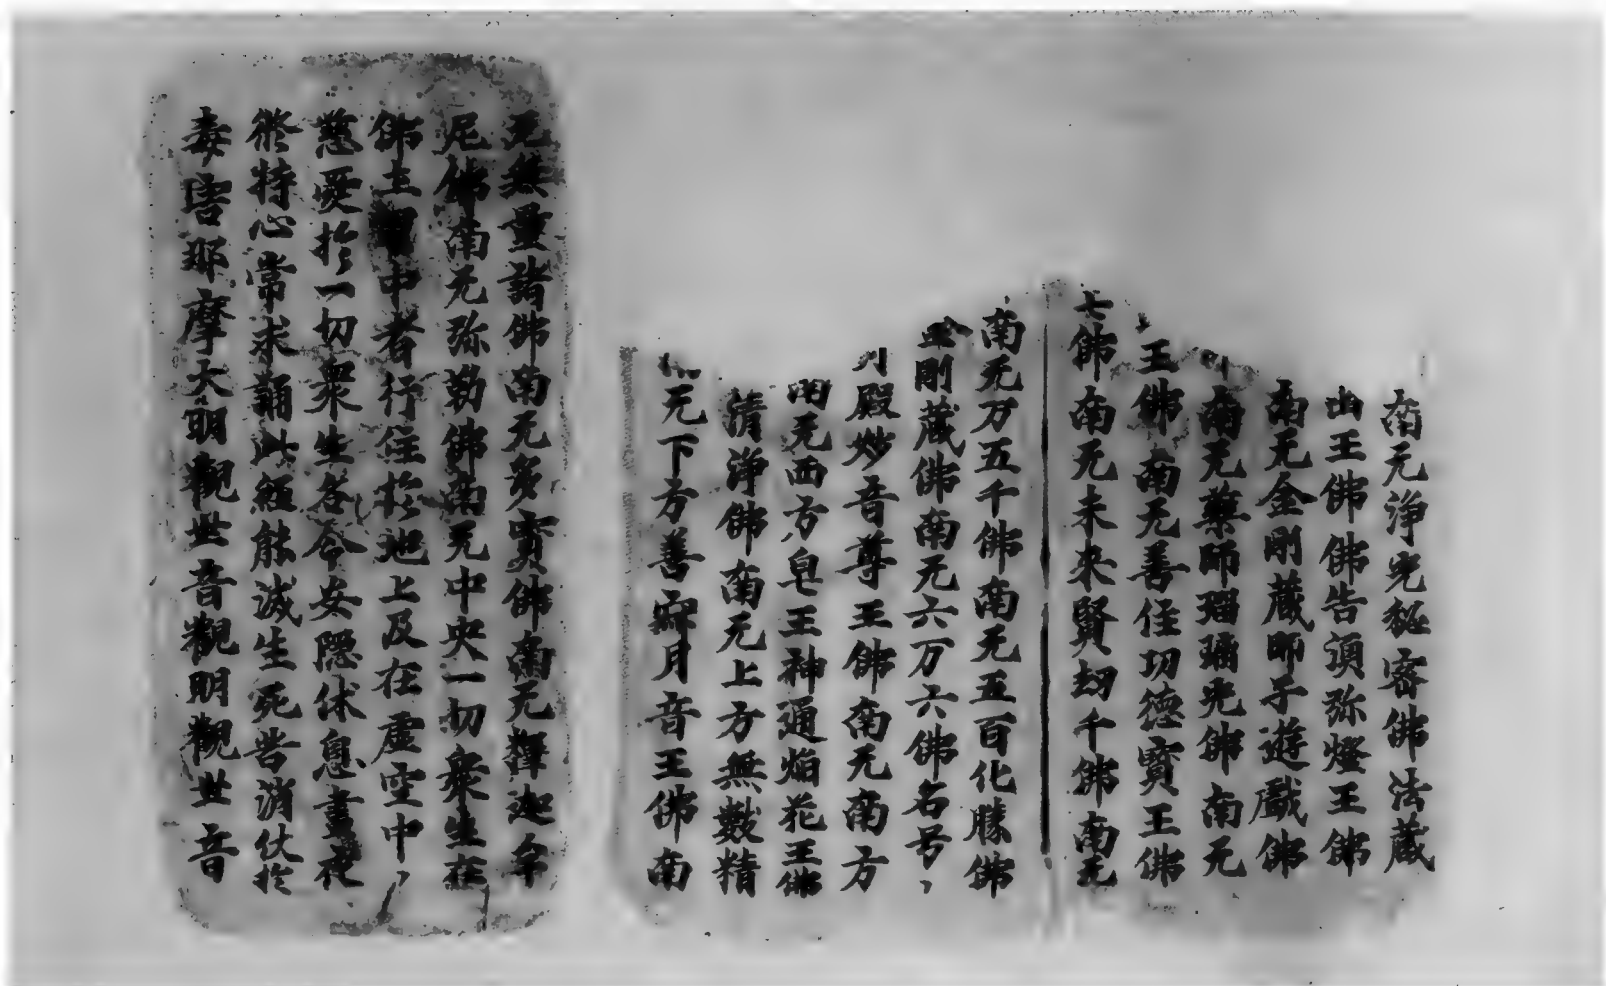 南无淨光秘密佛法藏
山王佛佛告須弥燈王佛
南无金剛藏師子遊戲佛
南无藥師瑠璃光佛南无
王佛南无善住功德寳王佛
七佛南无未来賢劫千佛南无
南无万五千佛南无五百化勝佛
金剛藏佛南无六万六佛名号
殿妙音尊王佛南无南方
南无西方皂王神通焰花王佛
清淨佛南无上方無數精
无下方善寂月音王佛南
无無量諸佛南无多寳佛南无釋迦牟
尼佛南无弥勒佛南无中央一切衆生在
佛土中者行住於地上及在虛空中
慈憂於一切衆生各令安隱休息晝夜
脩持心常求誦此經能滅生死苦消伏於
毒害那摩大明觀世音觀明觀世音